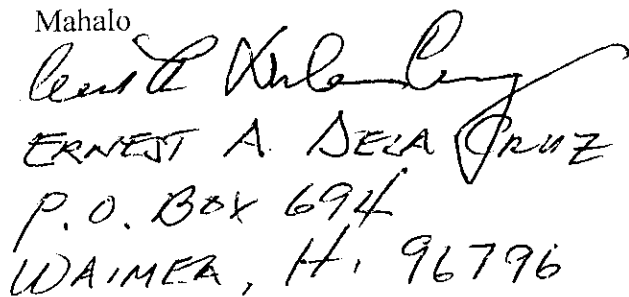 Mahalo
ERNEST A. DELA CRUZ
P.O. BOX 694
WAIMEA, HI 96796